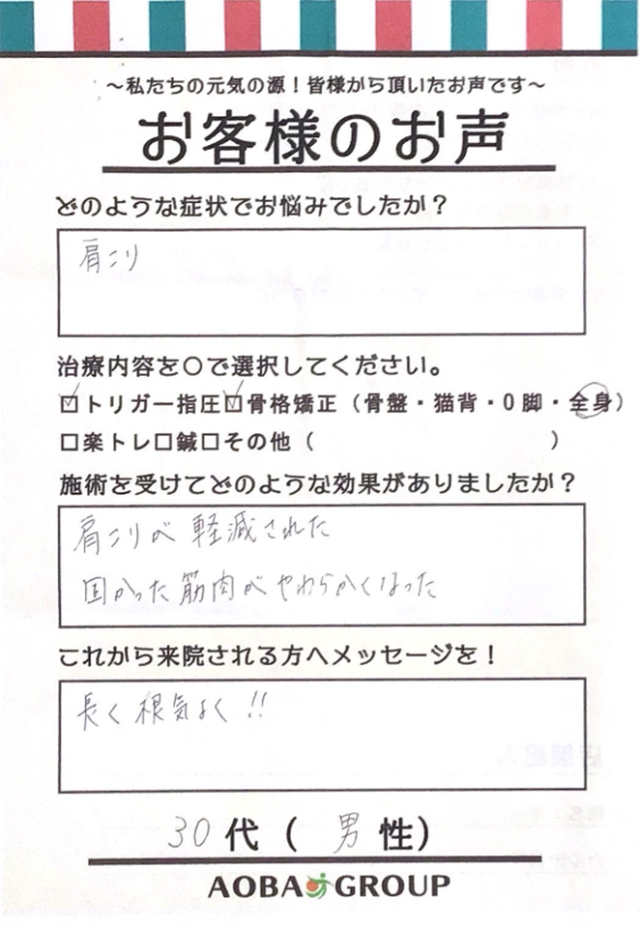 ～私たちの元気の源！皆様から頂いたお声です～
お客様のお声
どのような症状でお悩みでしたか？
肩こり
治療内容を○で選択してください。
☑トリガー指圧☑骨格矯正（骨盤・猫背・O脚・全身）
□楽トレ□鍼□その他（　　　　　　　　　　）
施術を受けてどのような効果がありましたか？
肩こりが軽減された
固かった筋肉がやわらかくなった
これから来院される方へメッセージを！
長く根気よく!!
30代（男性）
AOBA GROUP